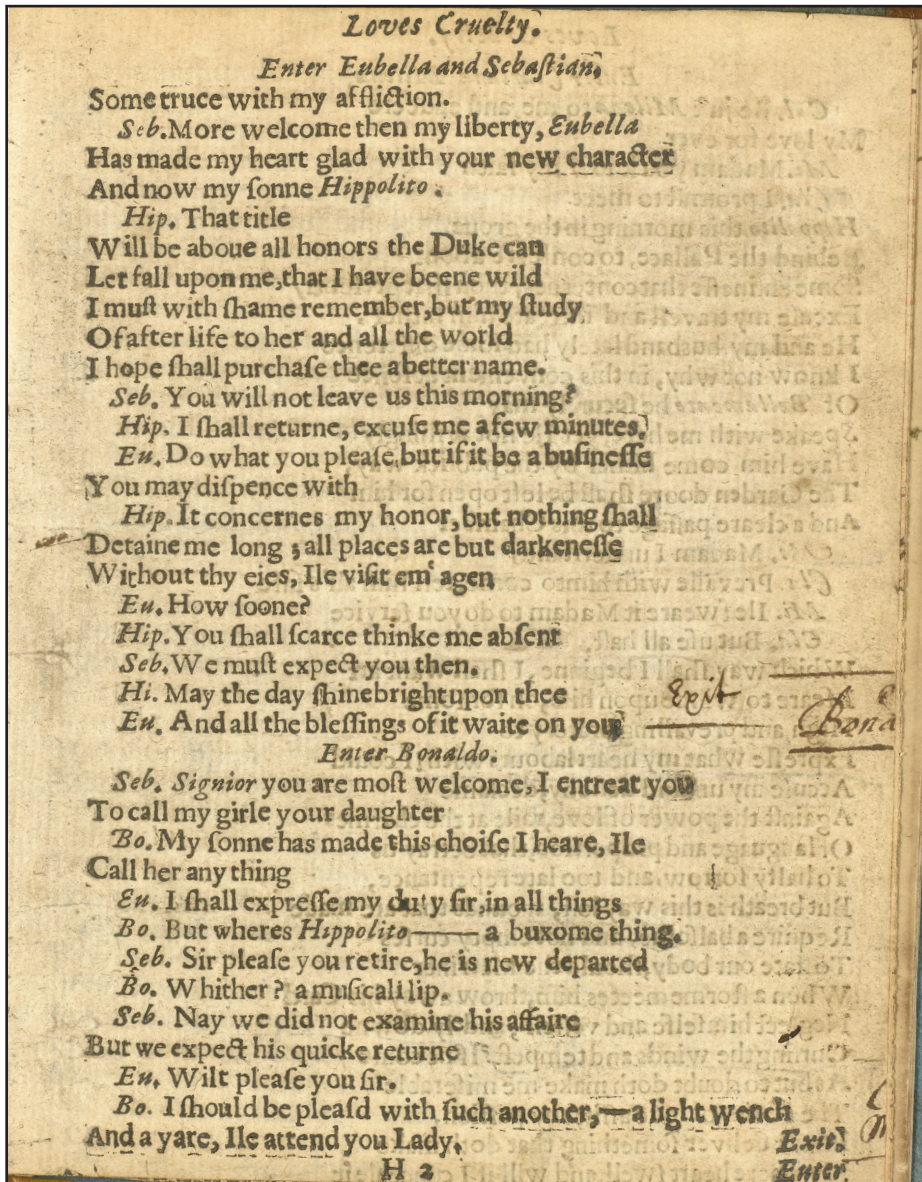 Loves Cruelty.
Enter Eubella and Sebaſtian,
Some truce with my affliction.
Seb. More welcome then my liberty, Eubella
Has made my heart glad with your new character
And now my ſonne Hippolito.
Hip. That title
Will be aboue all honors the Duke can
Let fall upon me, that I have beene wild
I muſt with ſhame remember, but my ſtudy
Of after life to her and all the world
I hope ſhall purchaſe thee a better name.
Seb. You will not leave us this morning?
Hip. I ſhall returne, excuſe me a few minutes.
Eu. Do what you pleaſe, but if it be a buſineſſe
You may diſpence with
Hip. It concernes my honor, but nothing ſhall
Detaine me long ; all places are but darkeneſſe
Without thy eies, Ile viſit em' agen
Eu. How ſoone?
Hip. You ſhall ſcarce thinke me abſent
Seb. We muſt expect you then.
Hi. May the day ſhine bright upon thee
Exit
Eu. And all the bleſſings of it waite on you
Bona
Enter Bonaldo.
Seb. Signior you are moſt welcome, I entreat you
To call my girle your daughter
Bo. My ſonne has made this choiſe I heare, Ile
Call her any thing
Eu. I ſhall expreſſe my duty ſir, in all things
Bo. But wheres Hippolito—— a buxome thing.
Seb. Sir pleaſe you retire, he is new departed
Bo. Whither ? a muſicall lip.
Seb. Nay we did not examine his affaire
But we expect his quicke returne
Eu. Wilt pleaſe you ſir.
Bo. I ſhould be pleaſd with ſuch another,—a light wench
And a yare, Ile attend you Lady. Exit.
H 2 Enter